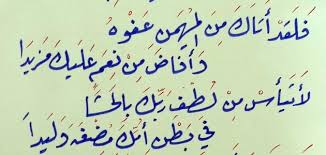 فَلَقَدْ أَتَاكَ مِنَ المُهَيْمِنِ عَفْوُهُ
وَأَفَاضَ مِنْ نِعَمٍ عَلَيْكَ مَزِيدَا
لَا تَيْأَسْ مِنْ لُطْفِ رَبِّكَ بِالحَشَا
فِي بَطْنِ أُمِّكَ مُضْغَةً وَلِيدَا